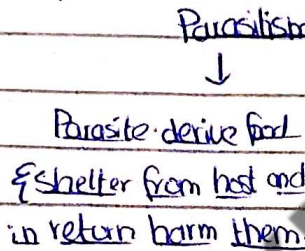 Parasitism
↓
Parasite · derive food
& shelter from host and
in return harm them